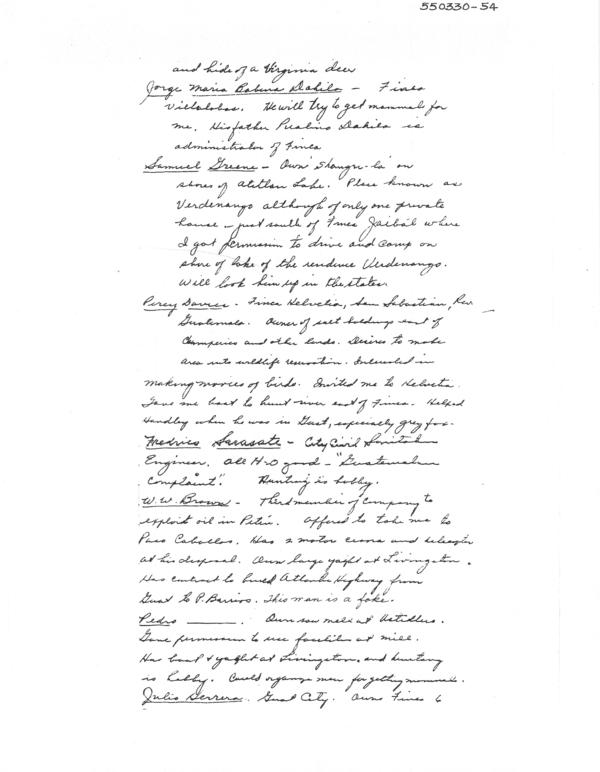 550330-54
and hide of a Virginia deer
Jorge Maria Dahilo - Finca
Villalobos. He will try to get mammals for
me. His father Dahilo is
administrator of Finca
Samuel Greene - Own 'Shangri-la' on
shores of Atitlan Lake. Place known as
Verdenango although of only one private
house - just south of Finca Jaibal where
I got permission to drive and camp on
shore of lake of the residence Verdenango.
Will look him up in the states.
Percy Davies - Finca Helvetia, San Sebastian, Reu
Guatemala. Owner of salt holdings east of
Champerico and other lands. Desires to make
area into wildlife reservation. Interested in
making movies of birds. Invited me to Helvetia.
Gave me boat to hunt river east of Finca. Helped
Handley when he was in Guat, especially grey fox.
Fredrico Sarasate - City Civil Sanitation
Engineer. All H2O good - "Guatemalan
Complaint". Hunting is hobby.
W. W. Brown - Third member of Company to
exploit oil in Petén. Offered to take me to
Paso Caballos. Has 2 motor and helicopter
at his disposal. Own large yacht at Livingston.
Has contract to build Atlantic Highway from
Guat to P. Barrios. This man is a fake.
Pedro ______. Own saw mill at
Gave permission to use facilities at mill.
Has boat & yacht at Livingston, and hunting
is hobby. Could organize men for getting mammals.
Julio Herrera. Guat City. Owns Finca